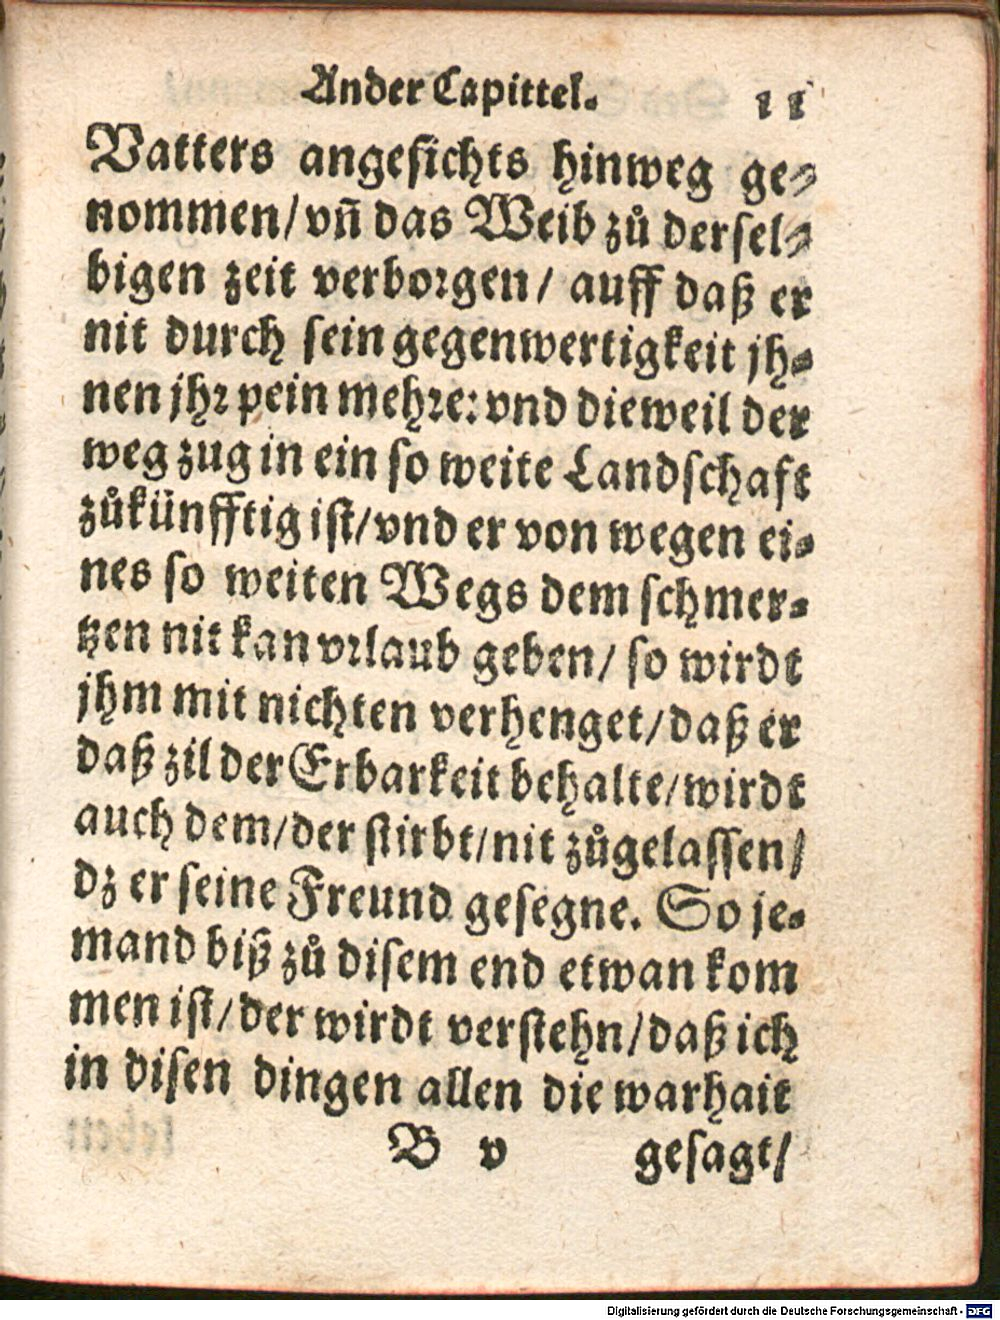 Ander Capittel. 11
Vatters angesichts hinweg ge-
nommen/ vñ das Weib zů dersel-
bigen zeit verborgen/ auff daß er
nit durch sein gegenwertigkeit jh-
nen jhr pein mehre: vnd dieweil der
weg zug in ein so weite Landschaft
zůkünfftig ist/ vnd er von wegen ei-
nes so weiten Wegs dem schmer-
tzen nit kan vrlaub geben/ so wirdt
jhm mit nichten verhenget/ daß er
daß zil der Erbarkeit behalte/ wirdt
auch dem/ der stirbt/ nit zůgelassen/
dz er seine Freund gesegne. So je-
mand biß zů disem end etwan kom
men ist/ der wirdt verstehn/ daß ich
in disen dingen allen die warhait
B v gesagt/
Digitalisierung gefördert durch die Deutsche Forschungsgemeinschaft - DFG